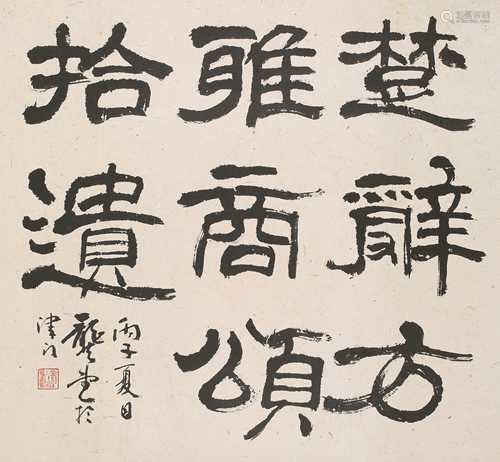 楚辭方
雅商頌
拾遺
丙子夏日
龔望於
津門